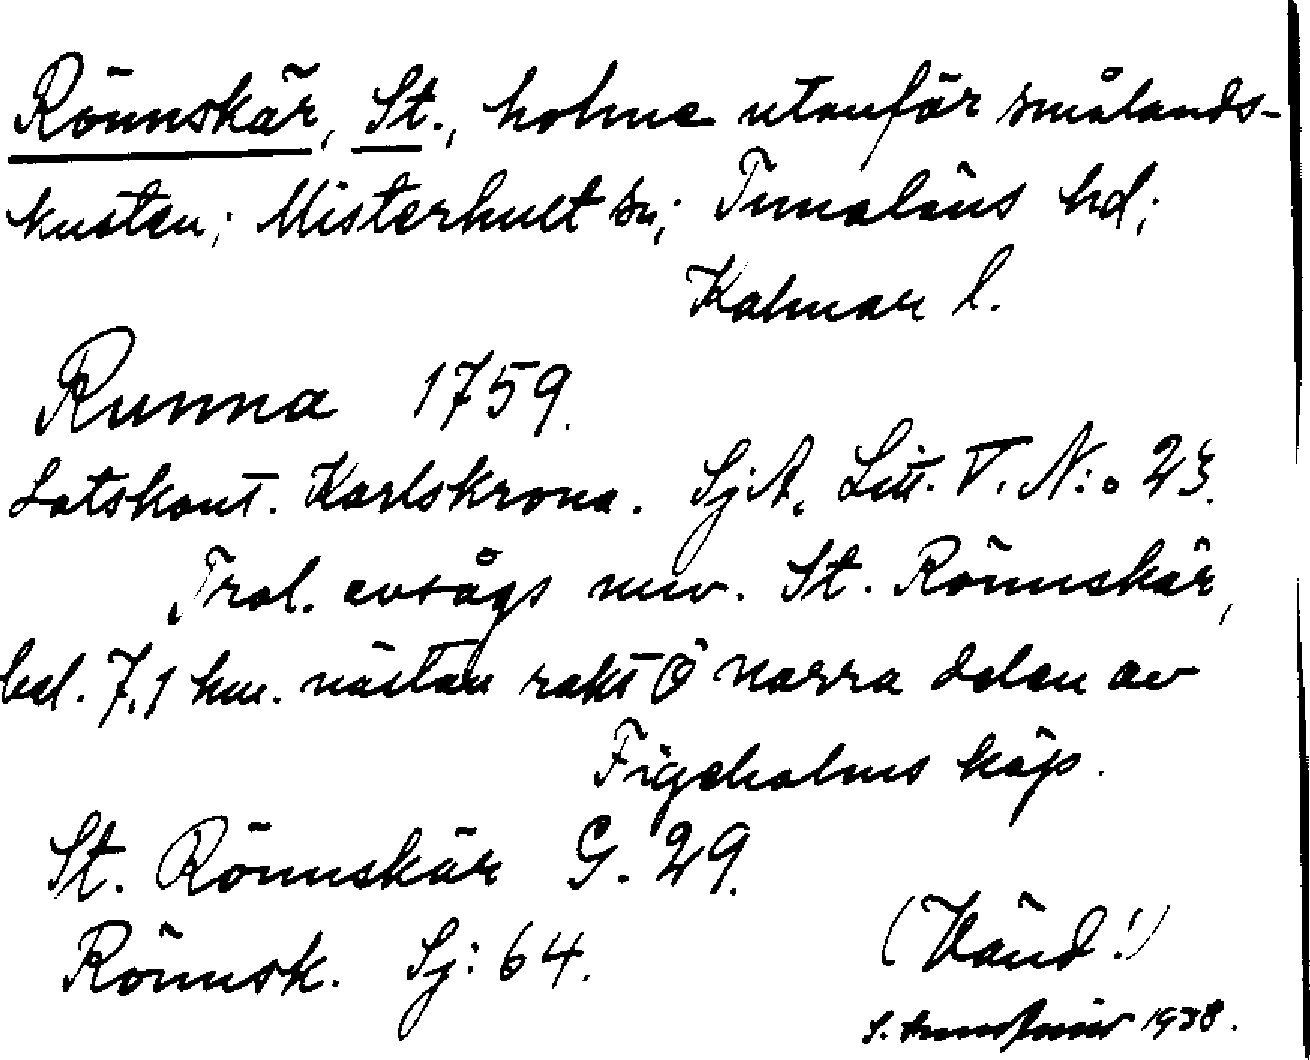 Rönnskär, St., holme utanför smålands-
kusten; Misterhult sn; Tunaläns hd;
Kalmar l.
Runna 1759.
Lotskont. Karlskrona. SjA. Litt. V. N:o 23.
Trol. avsågs nuv. St. Rönnskär,
bel. 7,1 km. nästan rakt Ö norra delen av
Figeholms köp.
St. Rönnskär G. 29.
Rönnsk. Sj: 64.
(Vänd!)
S. 1938.